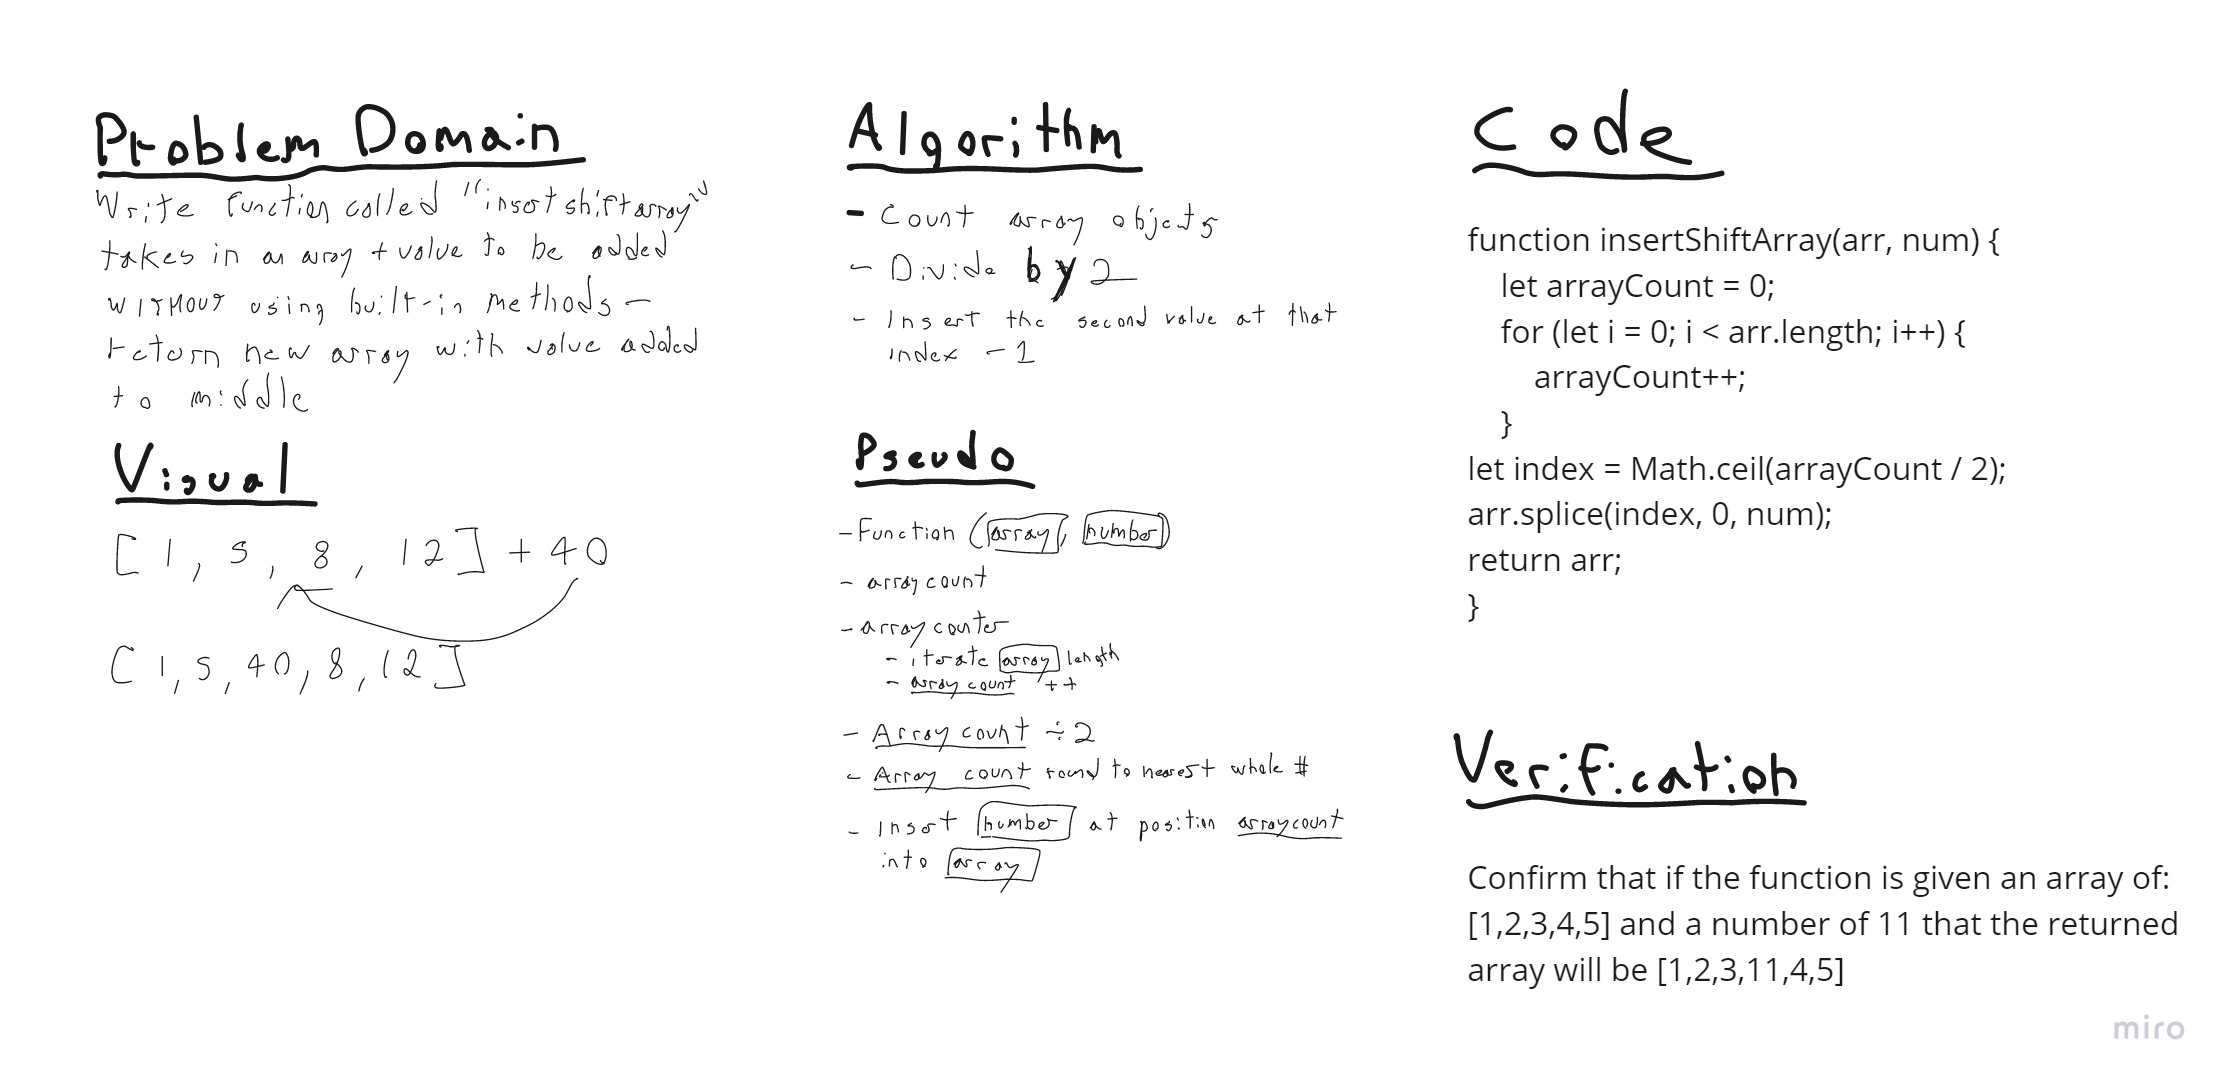 Problem Domain
Write function called "insertshiftarray"
takes in an array + value to be added
WITHOUT using built-in methods -
return new array with value added
to middle
Visual
[ 1, 5, 8, 12 ] + 40
[ 1, 5, 40, 8, 12 ]
Algorithm
- Count array objects
- Divide by 2
- Insert the second value at that
index - 1
Pseudo
- Function (array, number)
- array count
- array counter
- iterate array length
- array count ++
- Array count ÷ 2
- Array count round to nearest whole #
- Insert number at position arraycount
into array
Code
function insertShiftArray(arr, num) {
let arrayCount = 0;
for (let i = 0; i < arr.length; i++) {
arrayCount++;
}
let index = Math.ceil(arrayCount / 2);
arr.splice(index, 0, num);
return arr;
}
Verification
Confirm that if the function is given an array of:
[1,2,3,4,5] and a number of 11 that the returned
array will be [1,2,3,11,4,5]
miro